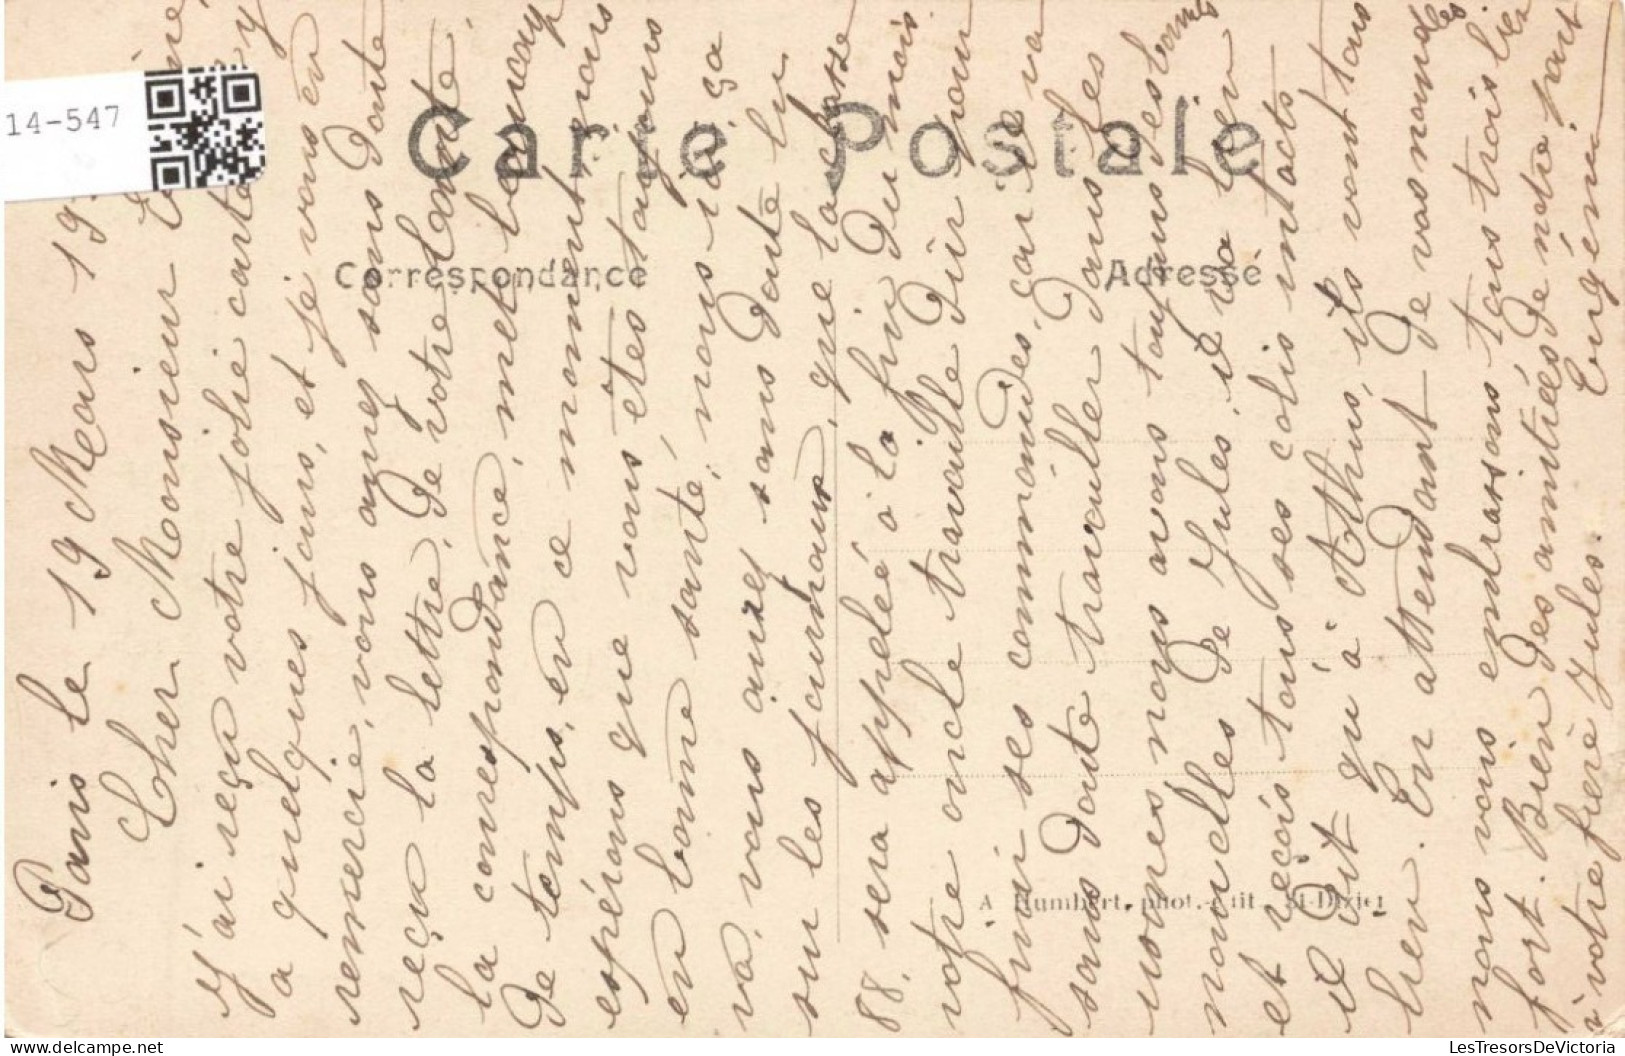 14-547
Carte Postale
Correspondance
Adresse
A Humbert, phot.-édit., St-Dizier
Paris le 19 Mars 19
Cher Monsieur
J'ai reçu votre jolie carte il y
a quelques jours, et je vous en
remercie, vous aurez sans doute
reçu la lettre, de votre tante,
la correspondance, met beaucoup
de temps, en ce moment, nous
espérons que vous êtes toujours
en bonne santé, nous ici ça
va, vous aurez sans doute lu
sur les journaux, que la classe
88, sera appelée à la fin du mois.
votre oncle travaille dur pour
finir ses commandes, car il va
sans doute travailler dans les
usines nous avons toujours des bonnes
nouvelles de Jules, il va bien
et reçois tous ses colis intacts
il dit qu'à Athus, ils vont tous
bien. En attendant de vos nouvelles
nous vous embrassons tous trois bien
fort. Bien des amitiés de notre part
à votre frère Jules. Eugénie
LesTresorsDeVictoria